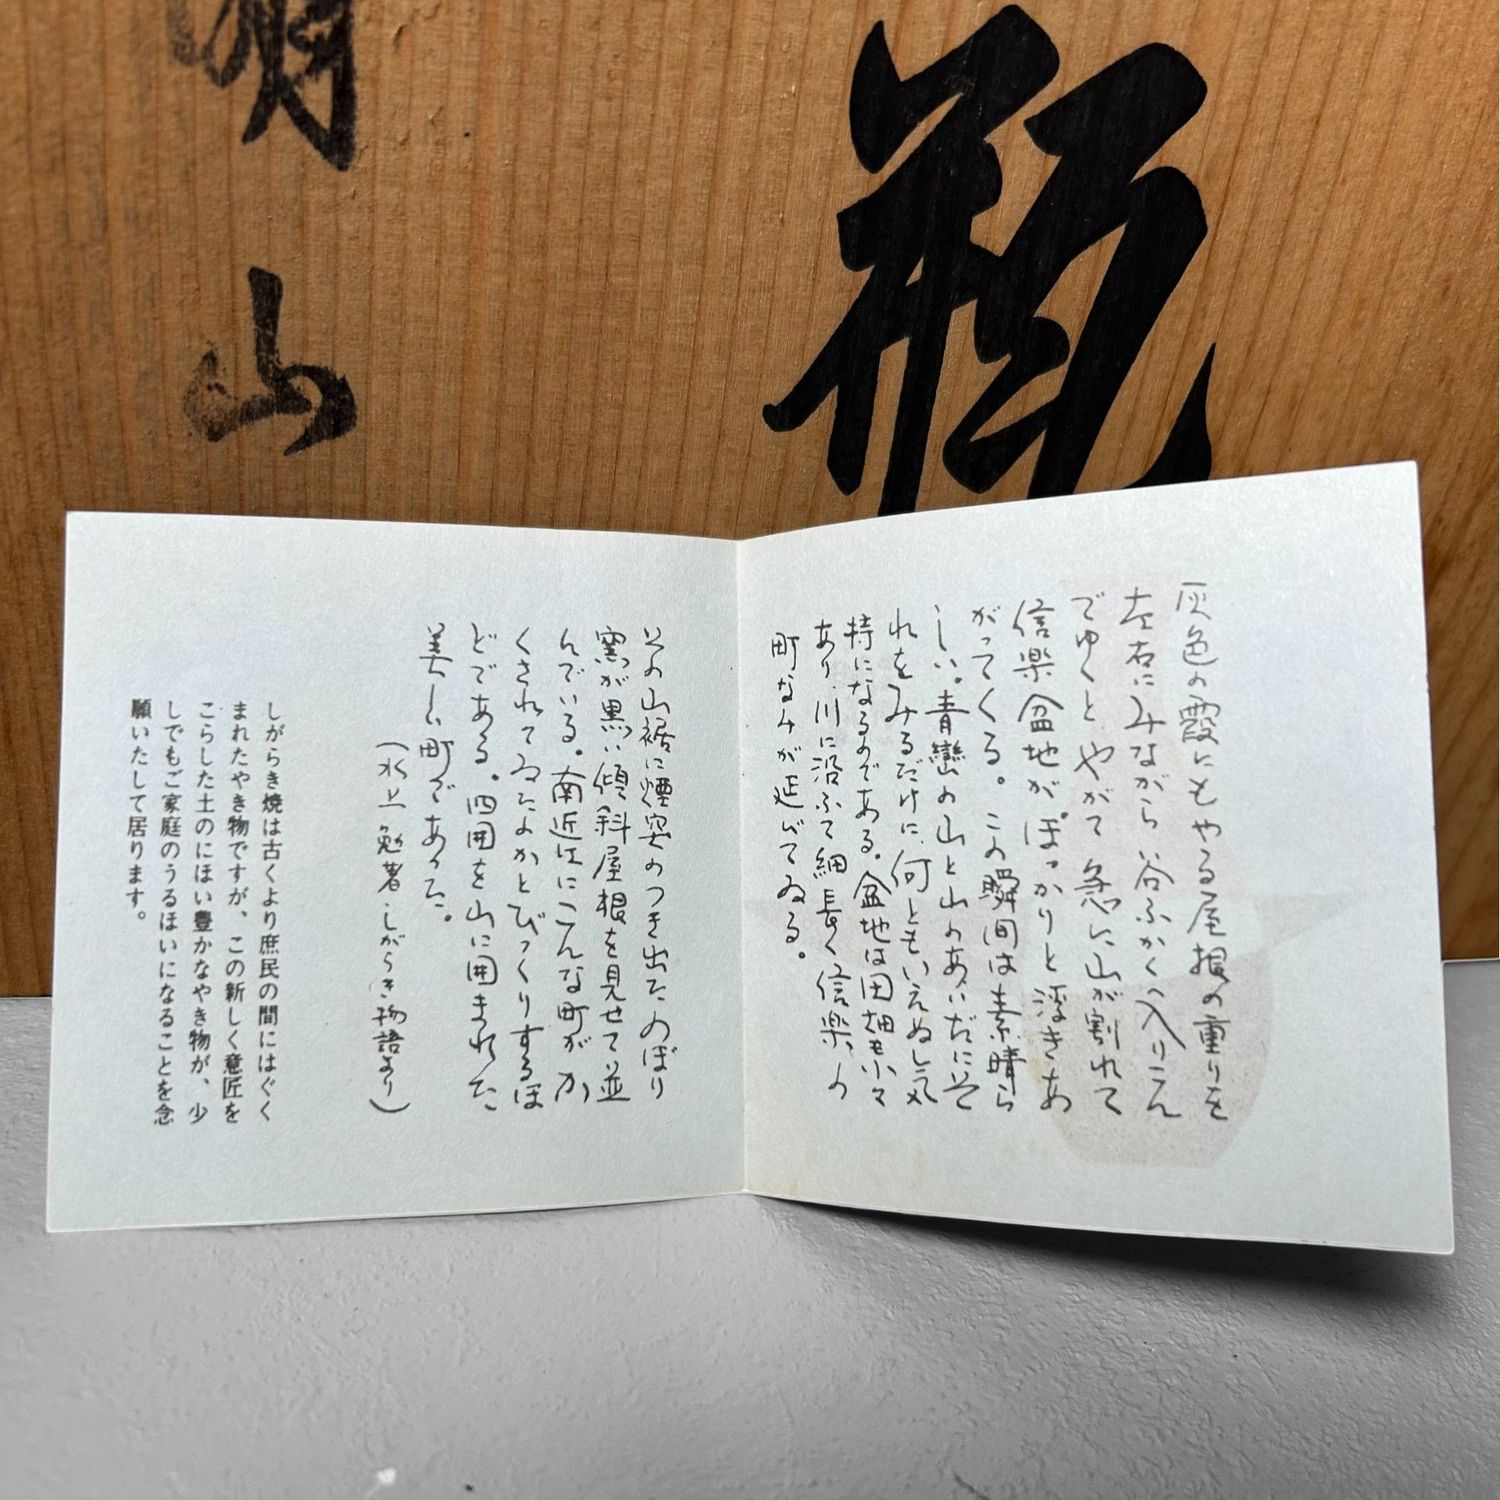 瓶
山
灰色の霞にもやる屋根の重りを
左右にみながら谷ふかく入りこん
でゆくと、やがて急に山が割れて
信楽盆地がぽっかりと浮きあ
がってくる。この瞬間は素晴ら
しい。青巒の山と山のあいだに
れをみるだけに、何ともいえぬ
特になるのである。盆地は田畑も
あり、川に沿ふて細長く信楽の
町なみが延びてゐる。
その山裾に煙突のつき出たのぼり
窯が黒い傾斜屋根を見せて並
んでいる。南近江にこんな町がか
くされてゐたかとびっくりするほ
どである。四囲を山に囲まれた
美しい町であった。
(水上勉著・しがらき物語より)
しがらき焼は古くより庶民の間にはぐく
まれたやき物ですが、この新しく意匠を
こらした土のにほい豊かなやき物が、少
しでもご家庭のうるほいになることを念
願いたして居ります。